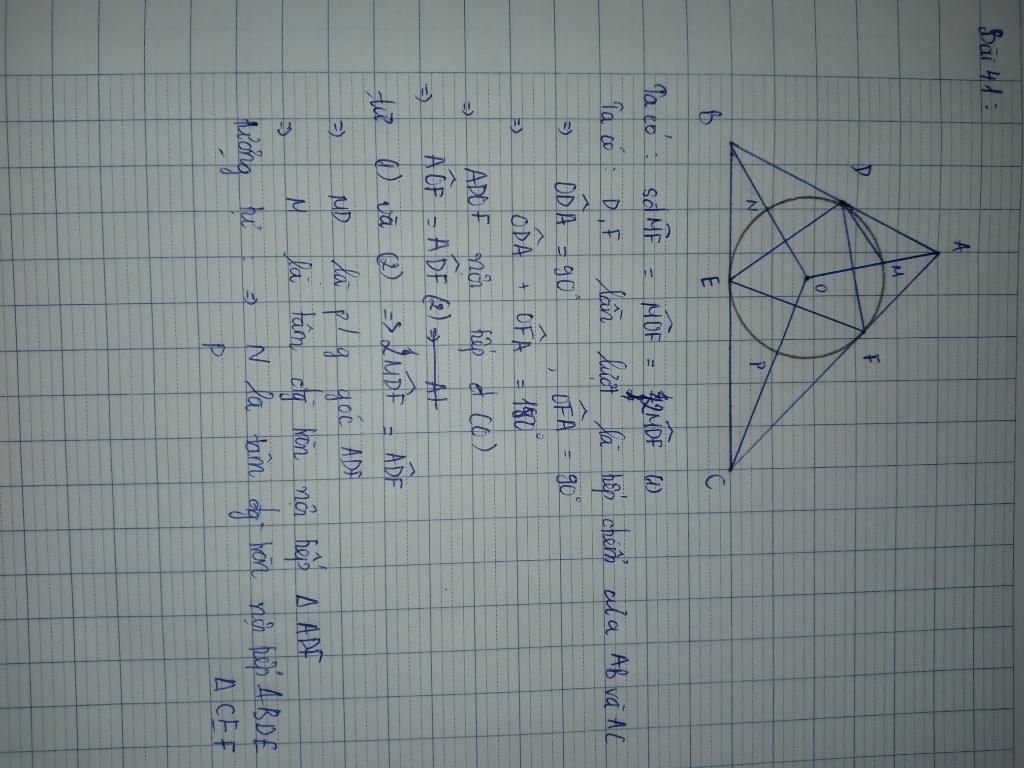 Bài 41:
A
D
M
F
O
N
P
B
E
C
Ta có : sđ MF = MOF = 2MDF (1)
Ta có : D, F lần lượt là tiếp điểm của AB và AC
=> ODA = 90° , OFA = 90°
=> ODA + OFA = 180°
=> ADOF nội tiếp (O)
=> AOF = ADF (2) => A
từ (1) và (2) => 2MDF = ADF
=> MD là p/g góc ADF
=> M là tâm đg tròn nội tiếp Δ ADF
tương tự : => N là tâm đg tròn nội tiếp Δ BDE
P Δ CEF